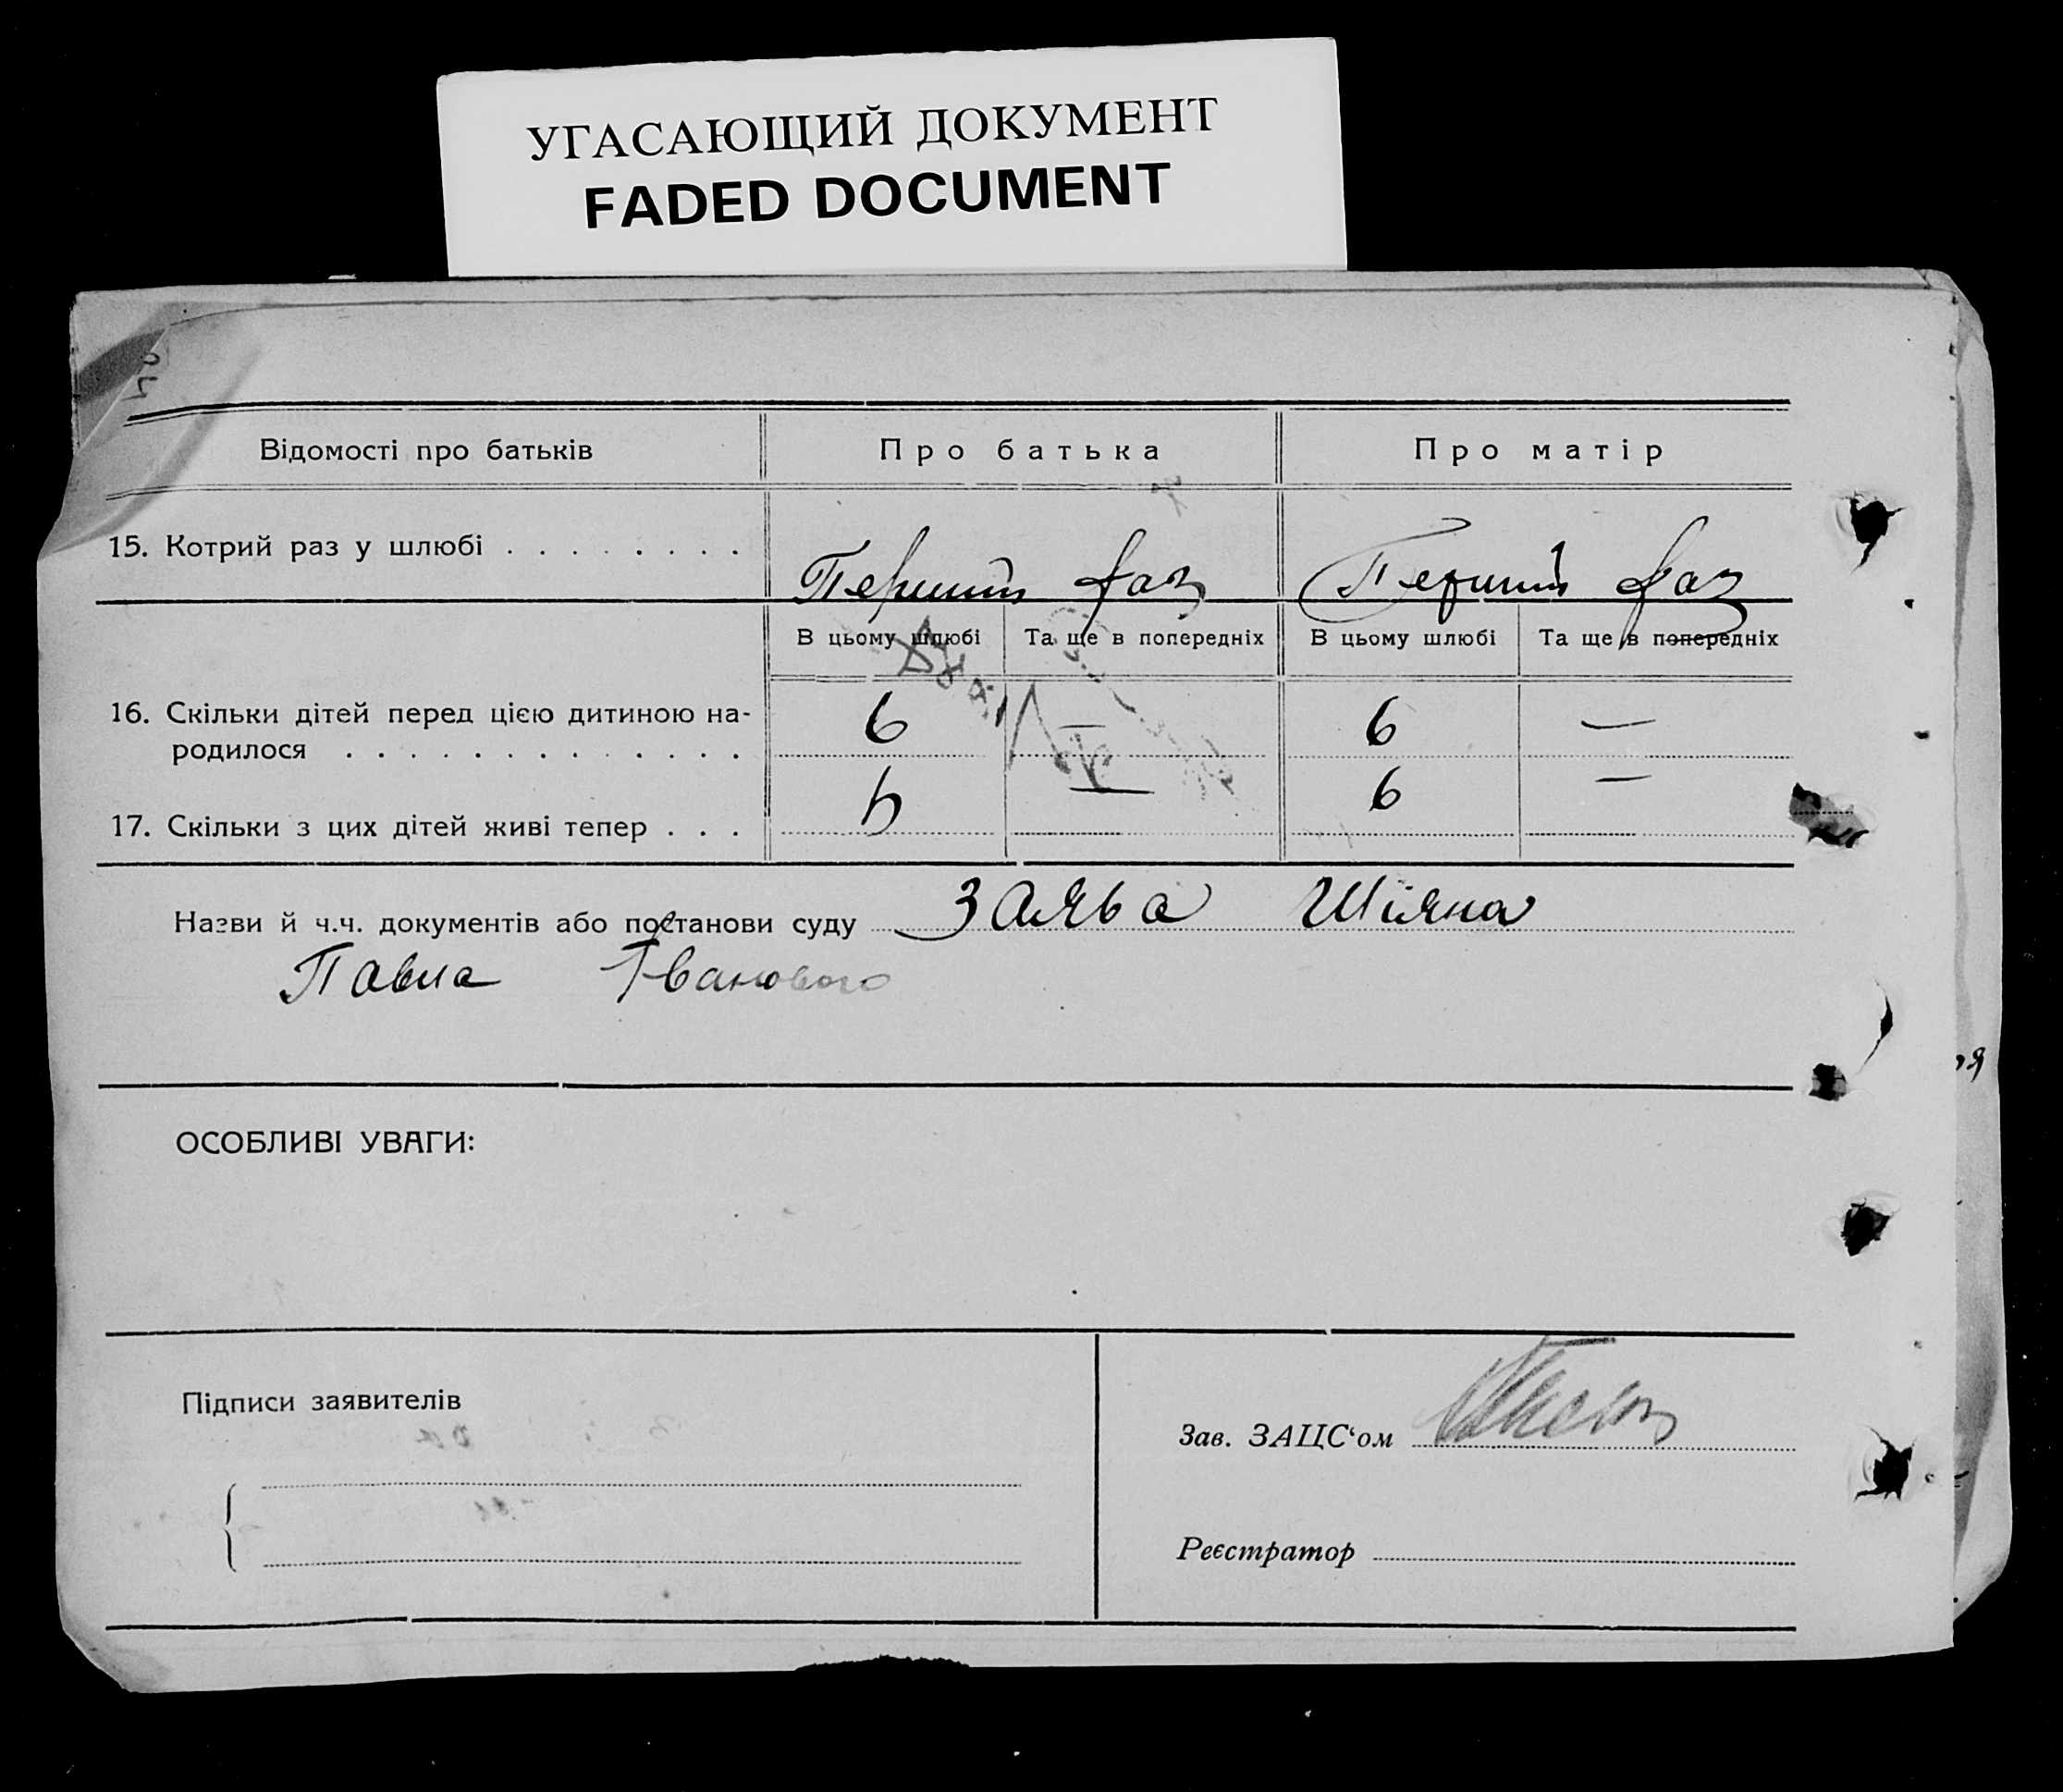 УГАСАЮЩИЙ ДОКУМЕНТ
FADED DOCUMENT
Відомості про батьків Про батька Про матір
15. Котрий раз у шлюбі . . . . . . . . Перший раз Перший раз
В цьому шлюбі Та ще в попередніх В цьому шлюбі Та ще в попередніх
16. Скільки дітей перед цією дитиною на- 6 — 6 —
родилося . . . . . . . . . . . . .
17. Скільки з цих дітей живі тепер . . . — 6 —
Назви й ч.ч. документів або постанови суду Заява Шіяна
Павла Іванового
ОСОБЛИВІ УВАГИ:
Підписи заявителів
Зав. ЗАЦС‘ом
Реєстратор